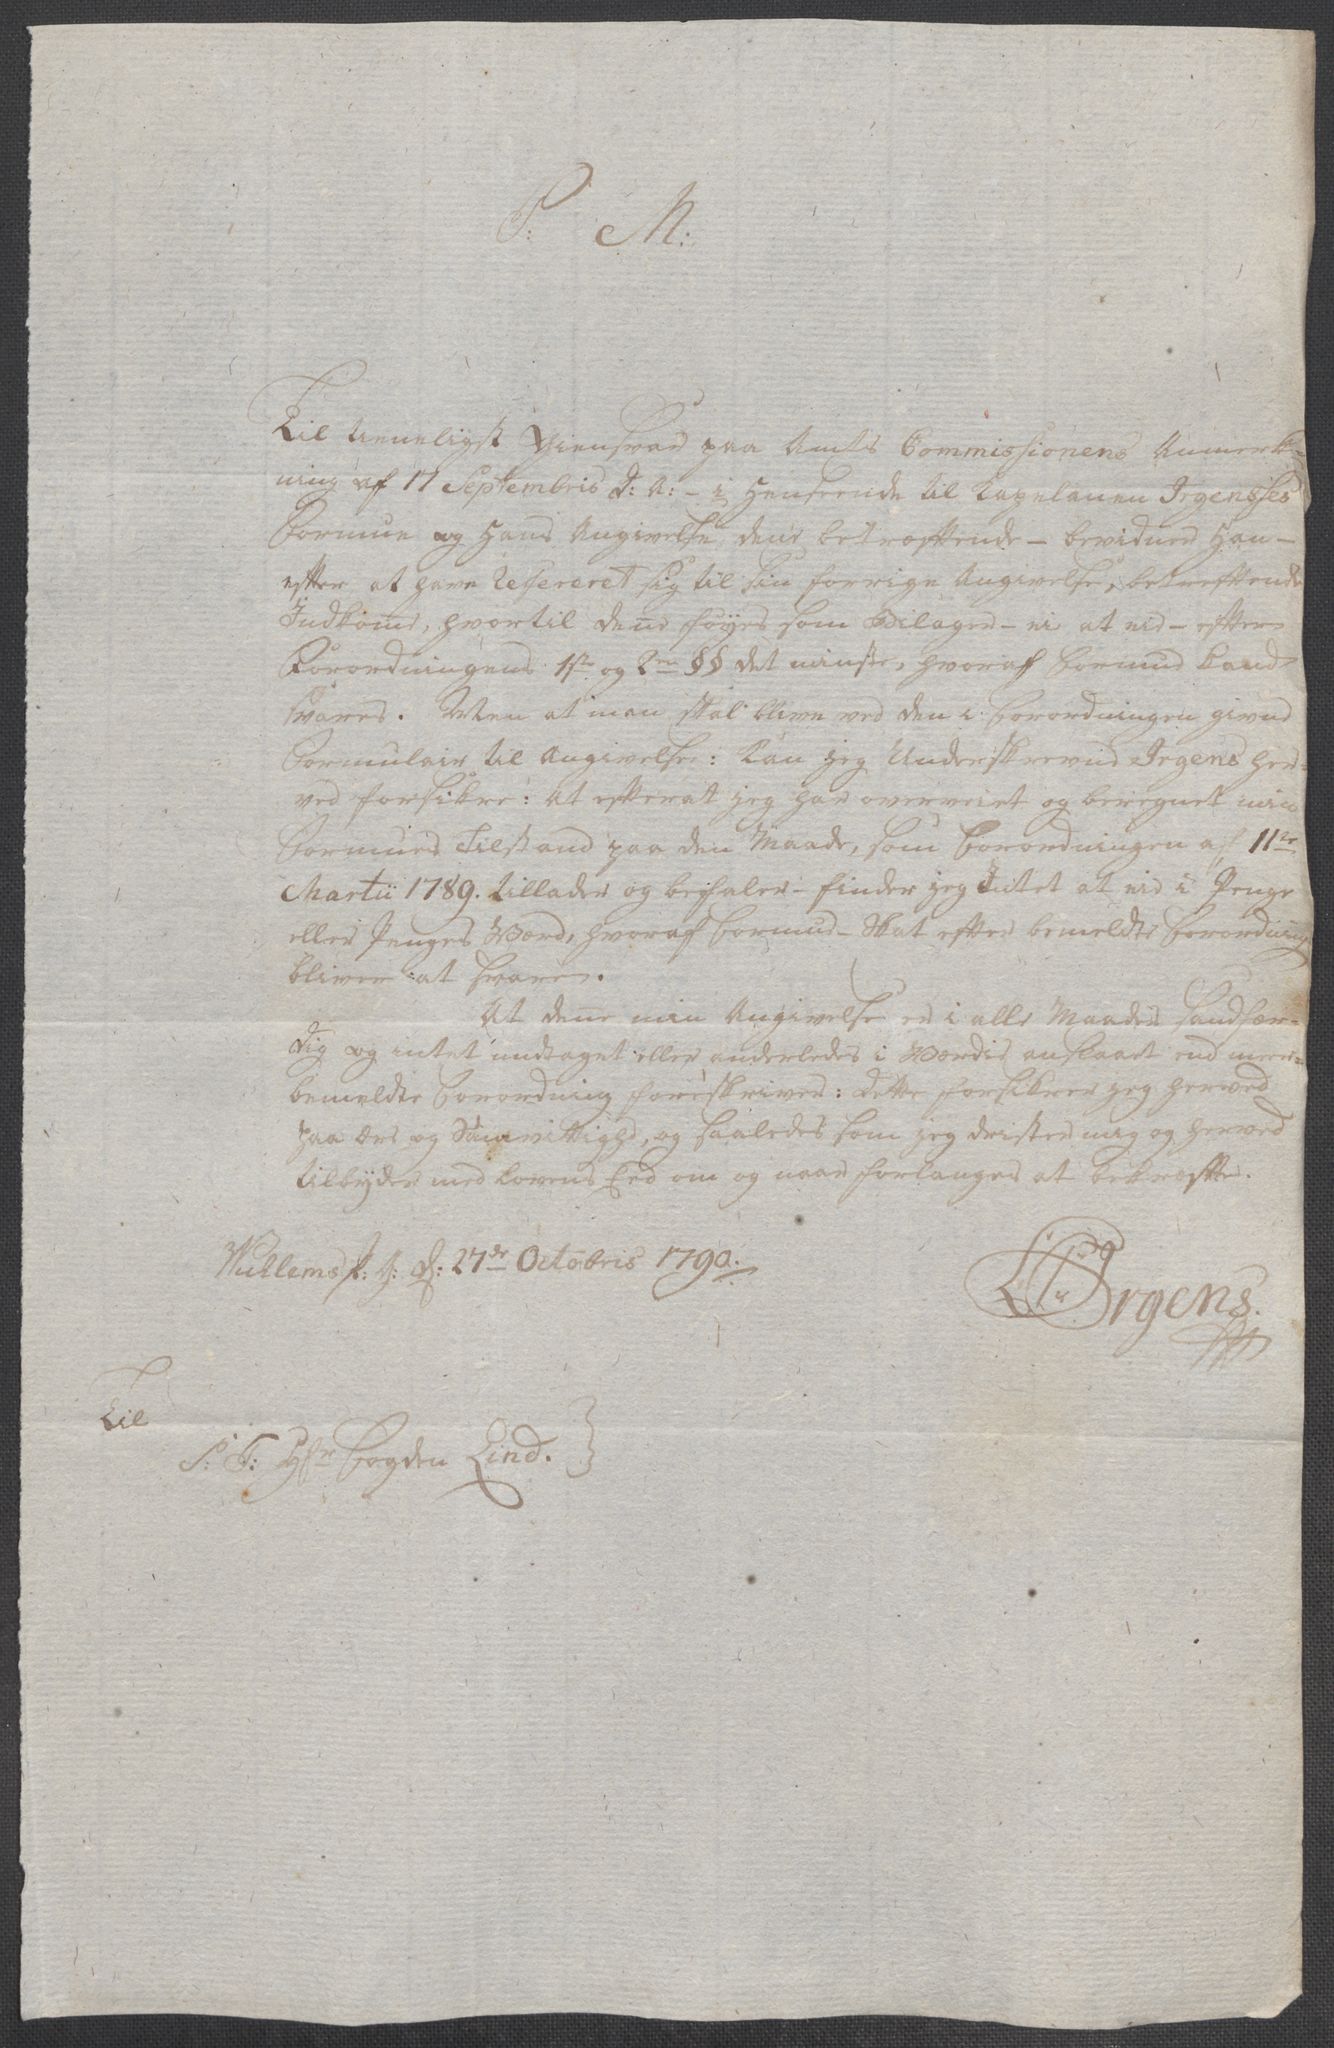 P: M:
Til tieneligst Giensvar paa Amts Commissionens Anmerk-
ning af 17 Septembris d: A: - i Henseende til Capelanen Irgensses
Formue og Hans Angivelse, dene betræffende - bevidner Han -
efter at have refereret sig til sin forrige Angivelse, betreffende
Indkomst, hvortil dene föyes som Bilager - ei at eie - efter
Forordningens 1ste og 2en §§ det minste, hvoraf Formue kand
svares. Men at man skal blive ved den i Forordningen givne
Formulair til Angivelse: kan jeg Underskrevne Irgens her-
ved forsikre: At efterat jeg har overveiet og beregnet min
Formues Tilstand paa den Maade, som Forordningen af 11te
Martii 1789. tillader og befaler - finder jeg Intet at eie i Penge
eller Penges Værd, hvoraf Formue-Skat efter bemeldte Forordning
bliver at svare.
At dene min Angivelse er i alle Maader sandfær-
dig og intet undtaget eller anderledes i Værdie anslaaet end meer-
bemeldte Forordning foreskriver: dette forsikrer jeg herved
paa Ære og Samvittighd, og saaledes som jeg drister mig og herved
tilbyder med Lovens Eed om og naar forlanges at bekræfte.
d: 27de Octobris 1790.
Irgens.
Til
S: T: Hr Fogden Lind.